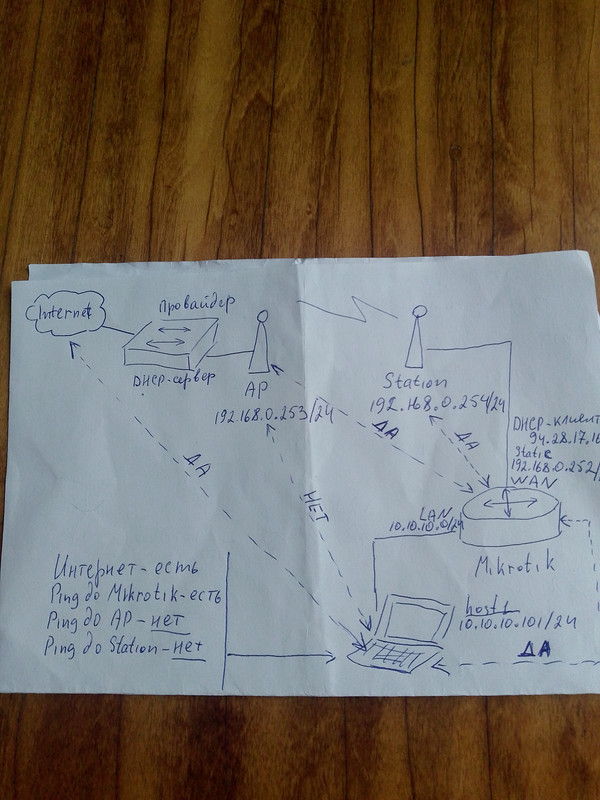 Internet
Провайдер
DHCP-сервер
AP
192.168.0.253/24
Station
192.168.0.254/24
DHCP-клиент
94.28.17.16
Static
192.168.0.252/
WAN
LAN
10.10.10.0/24
Mikrotik
ДА
ДА
ДА
НЕТ
host1
10.10.10.101/24
ДА
Интернет - есть
Ping до Mikrotik - есть
Ping до AP - нет
Ping до Station - нет